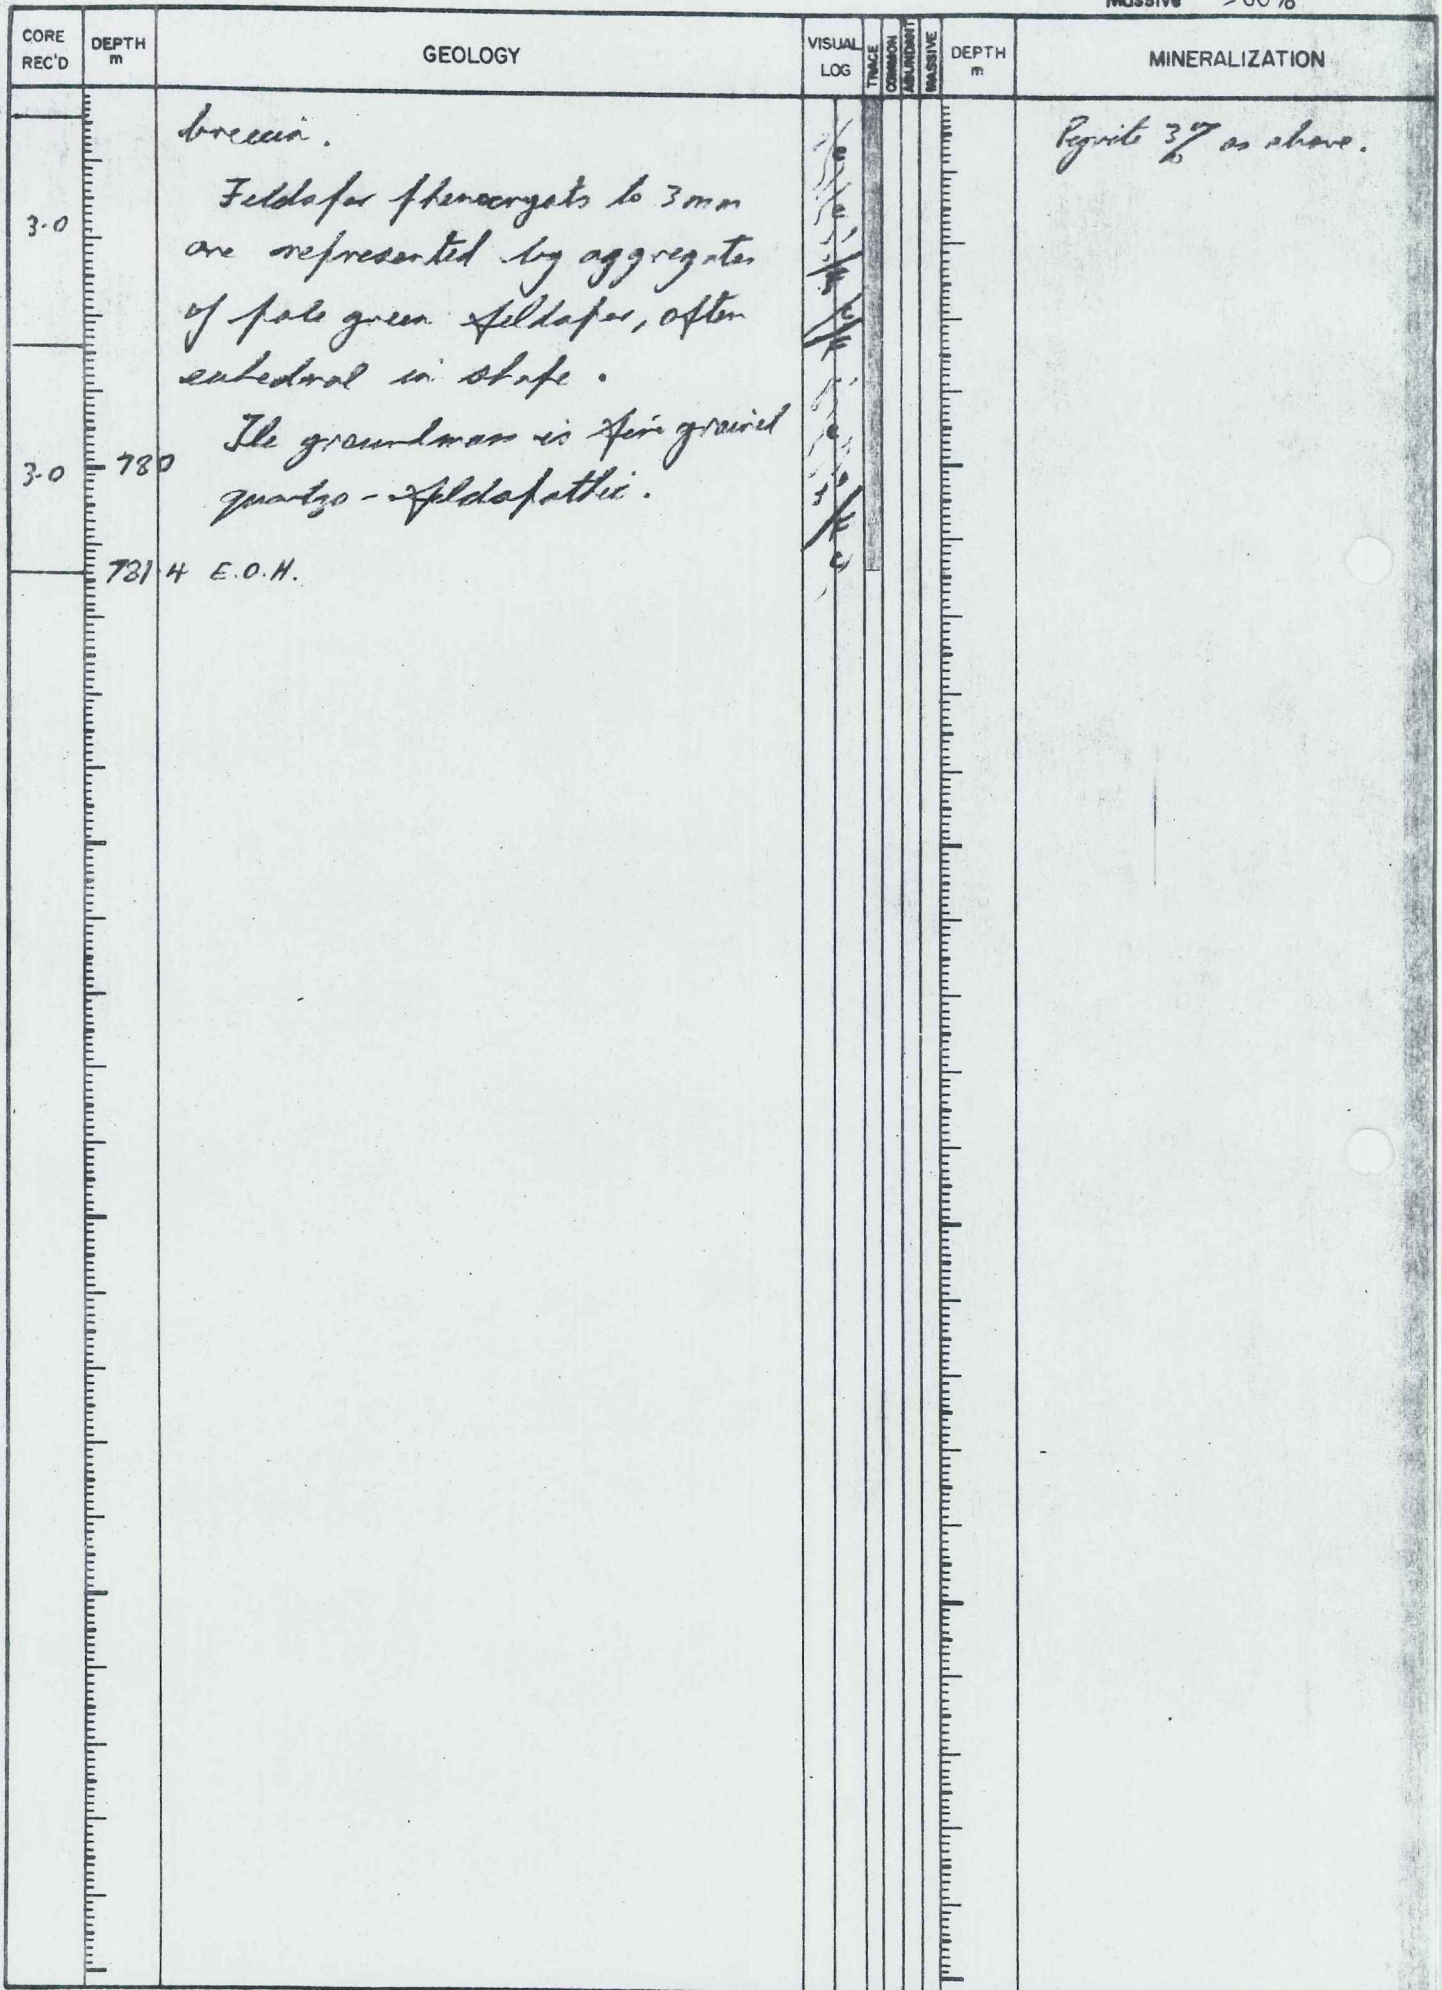 Massive >60%
CORE REC'D
DEPTH m
GEOLOGY
VISUAL LOG
TRACE
COMMON
ABUNDANT
MASSIVE
DEPTH m
MINERALIZATION
breccia.
Feldspar phenocrysts to 3mm
are represented by aggregates
of pale green feldspar, often
euhedral in shape.
The groundmass is fine grained
quartzo-feldspathic.
Pyrite 3% as above.
3.0
3.0
780
781.4 E.O.H.